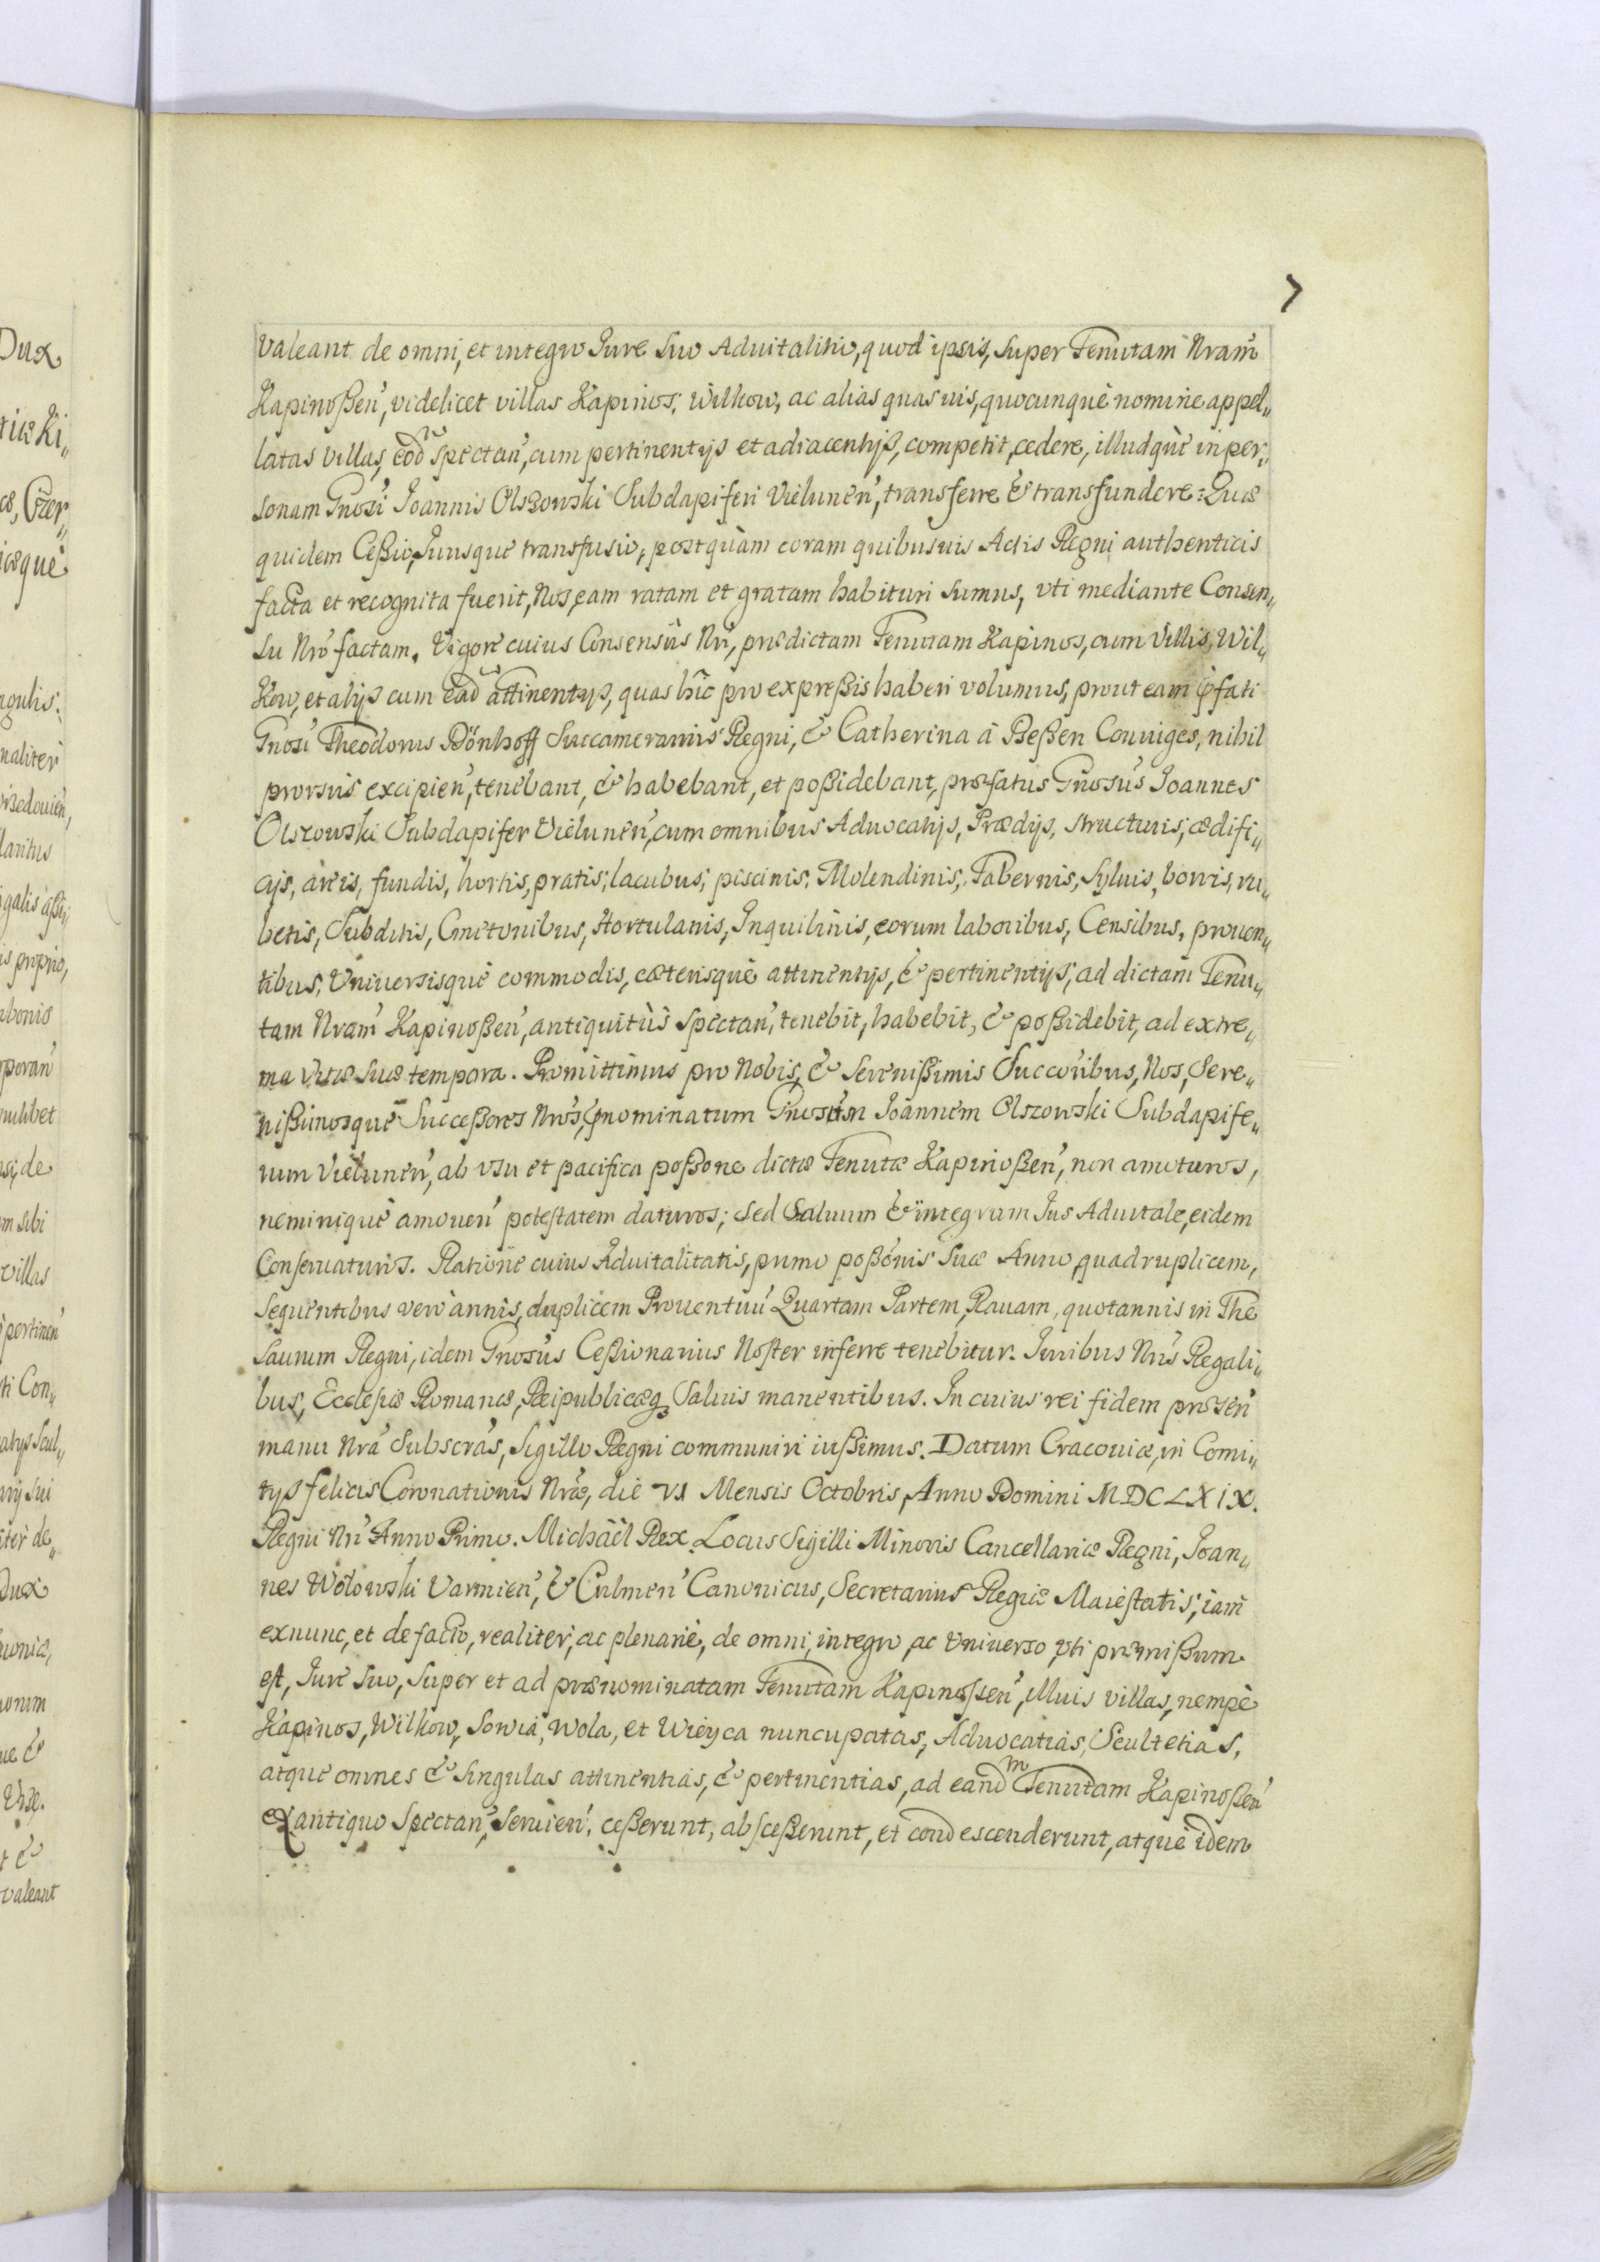 7
valeant de omni, et integro Jure Suo Aduitalitio, quod ipsis, super Tenutam Nram̃
Kapinoßeñ, videlicet villas Kapinos, Wilkow, ac alias quasuis, quocunquè nomine appel„
latas villas, eod̃ spectañ, cum pertinentijs et adiacentijs, competit, cedere, illudquè in per„
sonam Gñosi Joannis Olszowski Subdapiferi Vieluneñ, transferre & transfundere: Quæ
quidem Ceßio, Jurisque transfusio, postquàm coram quibusuis Actis Regni authenticis
facta et recognita fuerit, Nos, eam ratam et gratam habituri sumus, vti mediante Consen„
su Nrõ factam. Vigore cuius Consensûs Nri̇̃, prædictam Tenutam Kapinos, cum Villis, Wil„
kow, et alijs cum ead̃ attinentijs, quas hîc pro expreßis haberi volumus, prout eam p̃fati
Gñosi Theodorus Dönhoff Succamerarius Regni, & Catherina à Beßen Coniuges, nihil
prorsus excipieñ, tenebant, & habebant, et poßidebant, præfatus Gñosus Joannes
Olszowski Subdapifer Vieluneñ, cum omnibus Aduocatijs, Prædijs, structuris, ædifi„
cijs, àreis, fundis, hortis, pratis, lacubus, piscinis, Molendinis, Tabernis, Syluis, borris, ru„
betis, Subditis, Cmetonibus, Hortulanis, Inquilinis, eorum laboribus, Censibus, prouen„
tibus, Vniuersisquè commodis, cæterisquè attinentijs, & pertinentijs, ad dictam Tenu„
tam Nram̃ Kapinoßeñ, antiquitùs spectañ, tenebit, habebit, & poßidebit, ad extre„
ma vitæ suæ tempora. Promittimus pro Nobis, & Serenißimis Succor̃ibus, Nos, Sere„
nißimosquè Succeßores Nrõs, p̃nominatum Gñosum Joannem Olszowski Subdapife„
rum Vieluneñ, ab vsu et pacifica poßone dictæ Tenutæ Kapinoßeñ, non amoturos,
neminiquè amouen̄ potestatem daturos; sed Saluum & integrum Jus Aduitale, eidem
Conseruaturos. Ratione cuius Aduitalitatis, primo poßonis suæ Anno, quadruplicem,
sequentibus verò annis, duplicem Prouentuũ Quartam Partem, Rauam, quotannis in The
saurum Regni, idem Gñosus Ceßionarius Noster inferre tenebitur. Juribus Nrĩs Regali„
bus, Ecclesiæ Romanæ, Reipublicæq́ Saluis manentibus. In cuius rei fidem præseñ
manu Nrã Subscrãs, Sigillo Regni communiri iußimus. Datum Cracouiæ, in Comi„
tijs felicis Coronationis Nræ̃, die VI Mensis Octobris, Anno Domini MDCLXIX.
Regni Nrĩ Anno Primo. Michaël Rex. Locus Sigilli Minoris Cancellariæ Regni, Joan„
nes Wołowski Varmieñ, & Culmeñ Canonicus, Secretarius Regiæ Maiestatis, iam
exnunc, et de facto, realiter, ac plenariè, de omni, integro, ac Vniuerso, vti præmißum
est, Jure suo, super et ad prænominatam Tenutam Kapinosseñ, illius villas, nempè
Kapinos, Wilkow, Sowia, Wola, et Wieyca nuncupatas, Aduocatias, Scultetias,
atque omnes & singulas attinentias, & pertinentias, ad eand̃m Tenutam Kapinoßeñ
ex antiquo spectañ, Seruieñ, ceßerunt, absceßerunt, et condescenderunt, atquè idem